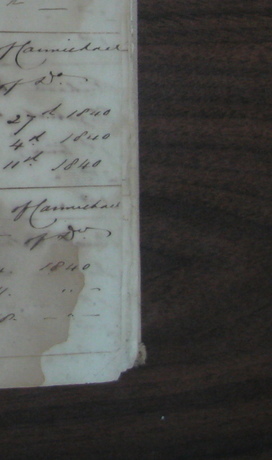 of Carmichael
of Do.
27th 1840
4th 1840
11th 1840
of Carmichael
of Do.
1840
" -
- -